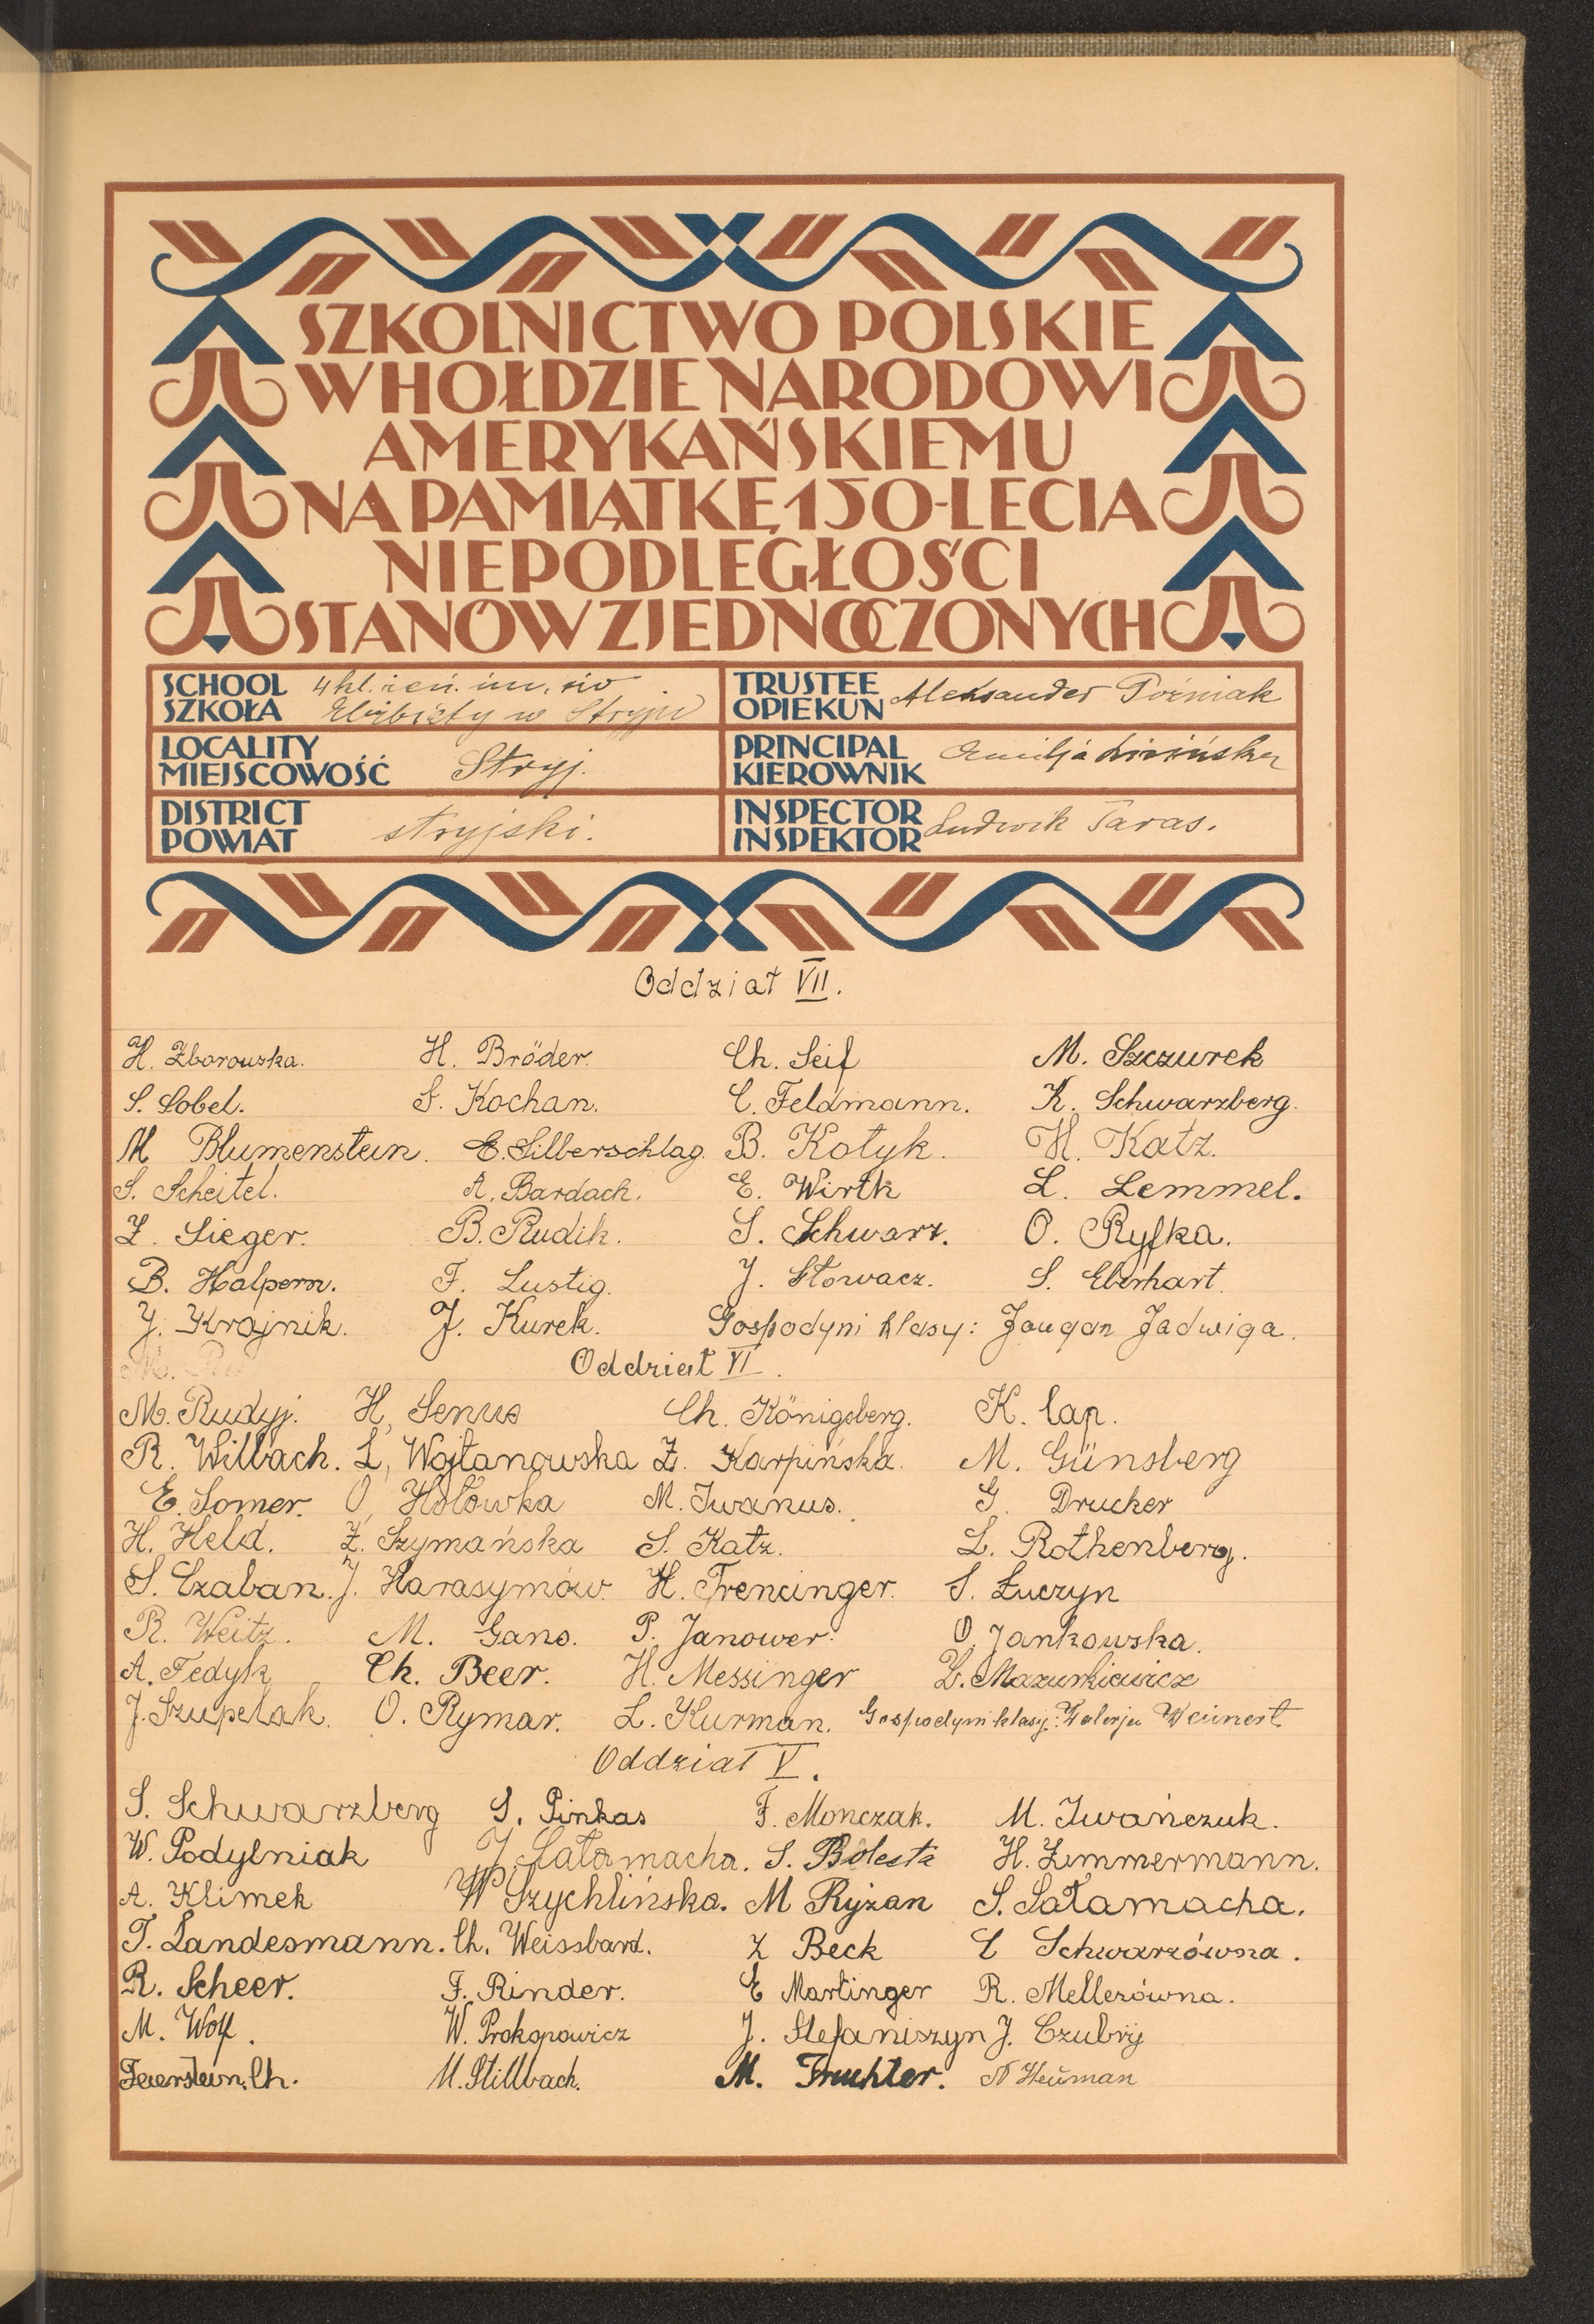 SZKOLNICTWO POLSKIE
W HOŁDZIE NARODOWI
AMERYKAŃSKIEMU
NA PAMIĄTKĘ 150-LECIA
NIEPODLEGŁOŚCI
STANÓW ZJEDNOCZONYCH
SCHOOL SZKOŁA 4 kl. żeń. im. św Elżbiety w Stryju
TRUSTEE OPIEKUN Aleksander Poźniak
LOCALITY MIEJSCOWOŚĆ Stryj.
PRINCIPAL KIEROWNIK Emilja
DISTRICT POWIAT stryjski.
INSPECTOR INSPEKTOR Ludwik Taras.
Oddział VII.
H. Zborowska. H. Bröder. Ch. Seif M. Szczurek
S. Sobel. S. Kochan. C. Feldmann. K. Schwarzberg.
M Blumenstein. E. Silberschlag. B. Kotyk. H. Katz.
S. Scheitel. A. Bardach. E. Wirth L. Lemmel.
Z. Sieger. B. Rudik. S. Schwarz. O. Ryfka.
B. Halpern. F. Lustig. J. Słowacz. S. Eberhart.
J. Krajnik. J. Kurek. Gospodyni klasy: Jougan Jadwiga.
Oddział VI.
M. Rudyj. H. Senus Ch. Königsberg. K. Cap.
R. Wilbach. L, Wojtanowska Z. Karpińska. M. Günsberg
E. Somer. O, Hołówka M. Iwanus. G. Drucker
H. Held. Z. Szymańska S. Katz. L. Rothenberg.
S. Czaban. J. Harasymów. H. Trencinger. S. Łuczyn
R. Weitz. M. Gans. P. Janower. O. Jankowska.
A. Fedyk Ch. Beer. H. Messinger Z. Mazurkiewicz
J. Szupelak. O. Rymar. L. Kurman. Gospodyni klasy: Walerja Weinert
Oddział V.
S. Schwarzberg S. Pinkas F. Monczak. M. Iwańczuk.
W. Podylniak J Sałamacha. S. Bolesta H. Zimmermann.
A. Klimek W Szychlińska. M Ryżan S. Sałamacha.
T. Landesmann. Ch. Weissbard. Z Beck C Schwarzówna.
R. Scheer. F. Rinder. E Martinger R. Mellerówna.
M. Wolf. W. Prokopowicz J. Stefaniszyn J. Czubryj
Feuerstein. Ch. M. Stillbach. M. Fruchter. N Heuman